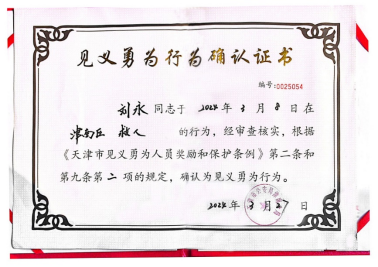 见义勇为行为确认证书
编号:0025054
刘永 同志于 2024 年 3 月 8 日在
救人 的行为，经审查核实，根据
《天津市见义勇为人员奖励和保护条例》第二条和
第九条第 二 项的规定，确认为见义勇为行为。
2024 年 3 月 27 日